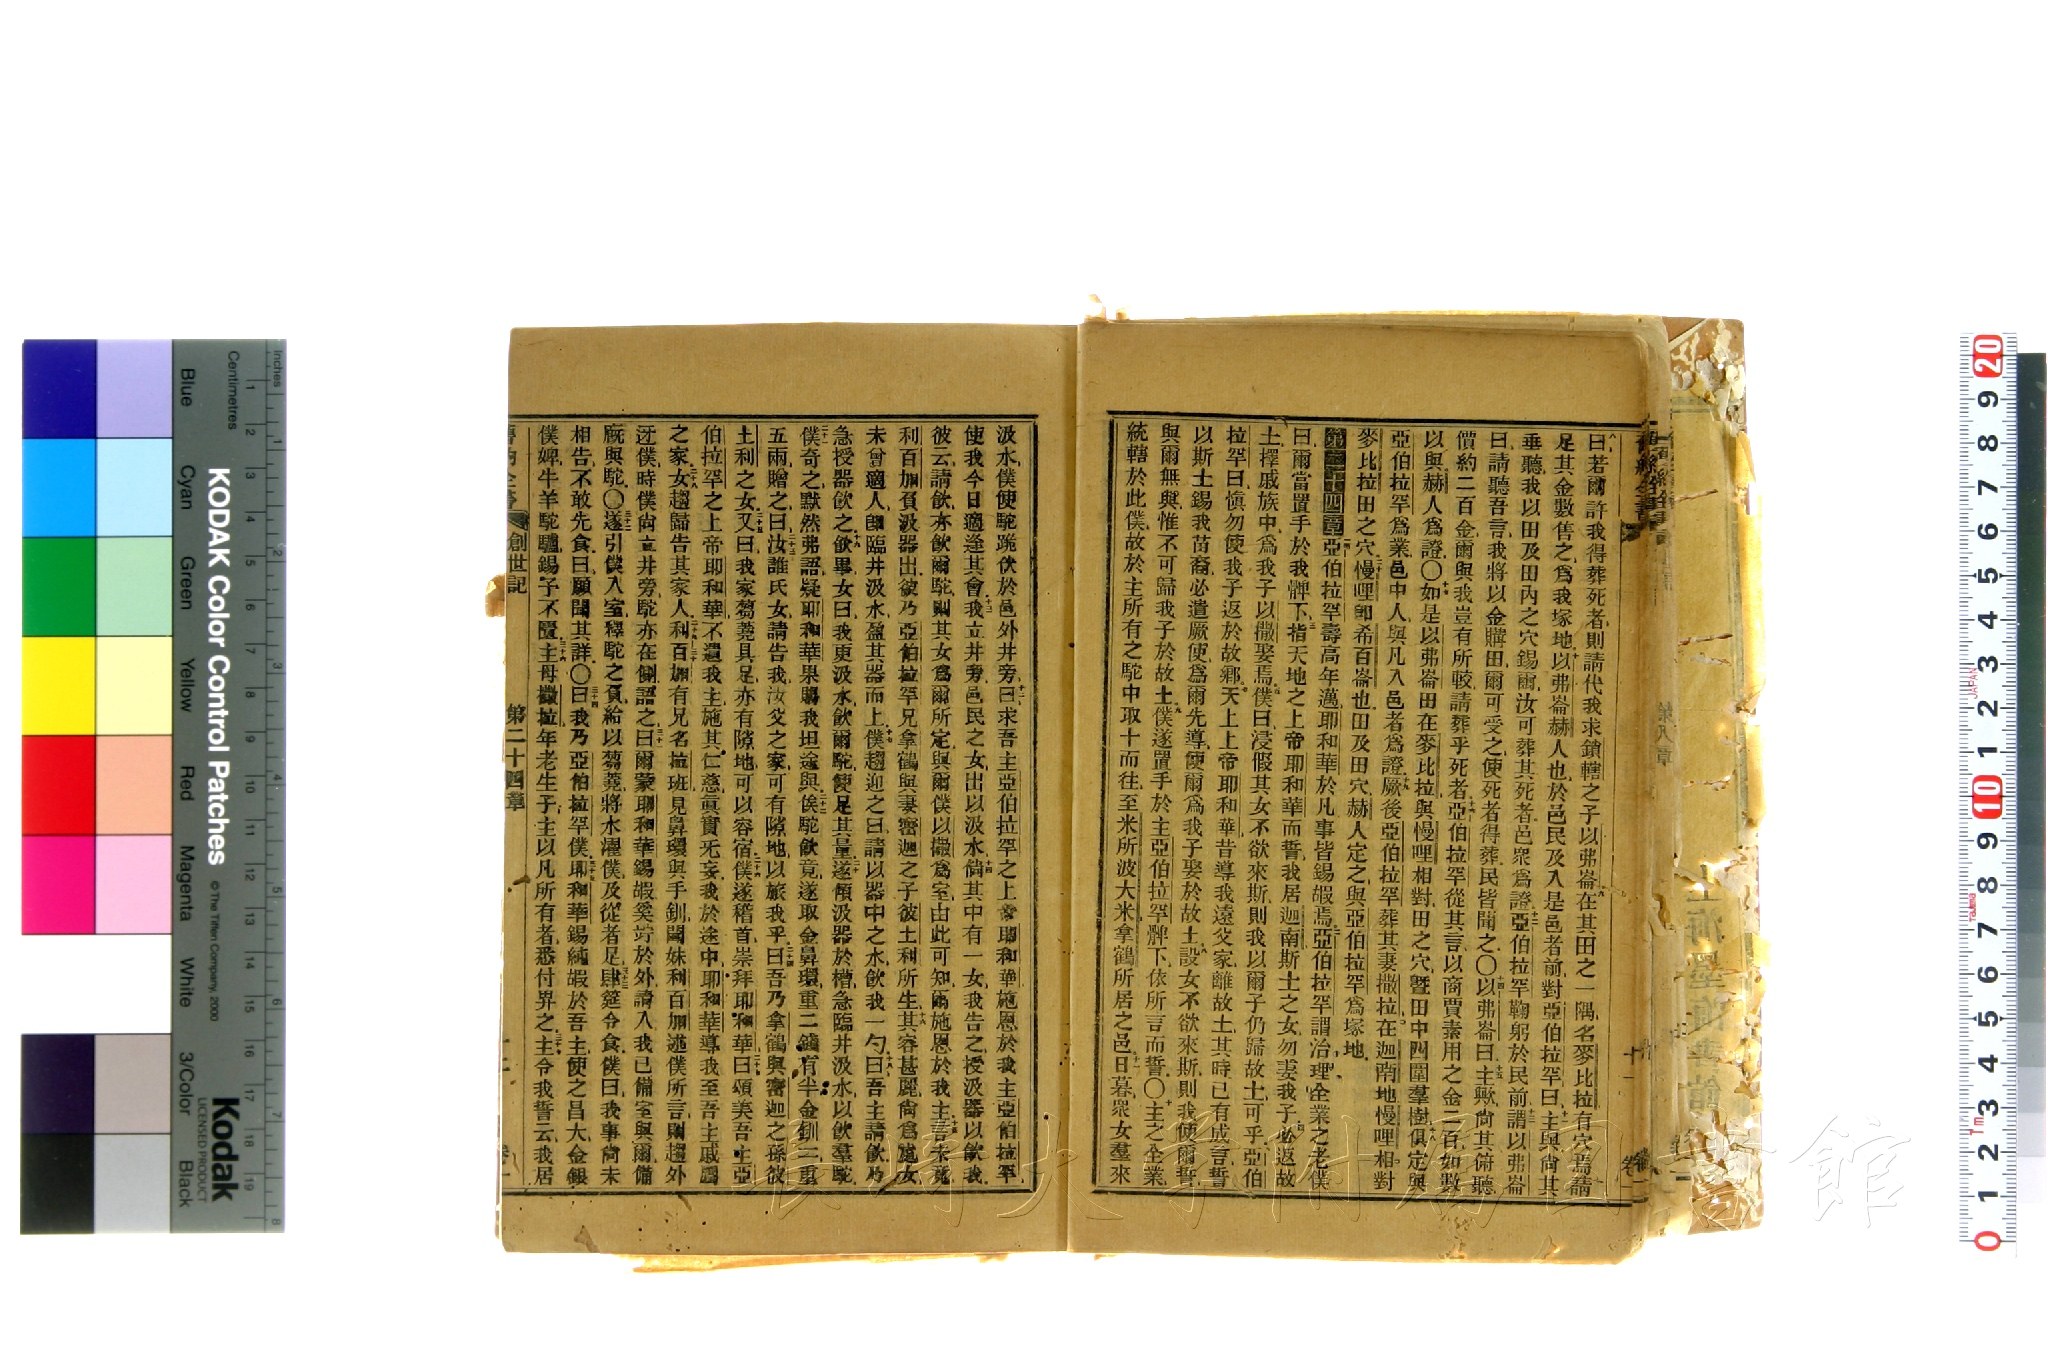 曰若爾許我得葬死者則請代我求鎖轄之子以弗崙在其田之一隅名麥比拉有穴焉請
足其金數售之爲我塚地以弗崙赫人也於邑民及入是邑者前對亞伯拉罕曰主與尙其
垂聽我以田及田內之穴錫爾汝可葬其死者邑衆爲證亞伯拉罕鞠躬於民前謂以弗崙
曰請聽吾言我將以金購田爾可受之使死者得葬民皆聞之〇以弗崙曰主歟尙其俯聽
價約二百金爾與我豈有所較請葬乎死者亞伯拉罕從其言以商賈素用之金二百如數
以與赫人爲證〇如是以弗崙田在麥比拉與慢哩相對田之穴曁田中四圍羣樹俱定與
亞伯拉罕爲業邑中人與凡入邑者爲證厥後亞伯拉罕葬其妻撒拉在迦南地慢哩相對
麥比拉田之穴慢哩卽希百崙也田及田穴赫人定之與亞伯拉罕爲塚地
第二十四章亞伯拉罕壽高年邁耶和華於凡事皆錫嘏焉亞伯拉罕謂治理全業之老僕
曰爾當置手於我髀下指天地之上帝耶和華而誓我居迦南斯土之女勿妻我子必返故
土擇戚族中爲我子以撒娶焉僕曰浸假其女不欲來斯則我以爾子仍歸故土可乎亞伯
拉罕曰愼勿使我子返於故鄕天上上帝耶和華昔導我遠父家離故土其時已有成言誓
以斯土錫我苗裔必遣厥使爲爾先導使爾爲我子娶於故土設女不欲來斯則我使爾誓
與爾無與惟不可歸我子於故土僕遂置手於主亞伯拉罕髀下依所言而誓〇主之全業
統轄於此僕故於主所有之駝中取十而往至米所波大米拿鶴所居之邑日暮衆女羣來
汲水僕使駝跪伏於邑外井旁曰求吾主亞伯拉罕之上帝耶和華施恩於我主亞伯拉罕
使我今日適逢其會我立井旁邑民之女出以汲水倘其中有一女我告之授汲器以飮我
彼云請飮亦飮爾駝則其女爲爾所定與爾僕以撒爲室由此可知爾施恩於我主言未竟
利百加負汲器出彼乃亞伯拉罕兄拿鶴與妻密迦之子彼土利所生其容甚麗尙爲處女
未曾適人卽臨井汲水盈其器而上僕趨迎之曰請以器中之水飮我一勺曰吾主請飮乃
急授器飮之飮畢女曰我更汲水飮爾駝使足其量遂傾汲器於槽急臨井汲水以飮羣駝
僕奇之默然弗語疑耶和華果賜我坦途與俟駝飮竟遂取金鼻環重二錢有半金釧二重
五兩贈之曰汝誰氏女請告我汝父之家可有隙地以旅我乎曰吾乃拿鶴與密迦之孫彼
土利之女又曰我家芻蕘具足亦有隙地可以容宿僕遂稽首崇拜耶和華曰頌美吾主亞
伯拉罕之上帝耶和華不遺我主施其仁慈眞實无妄我於途中耶和華導我至吾主戚屬
之家女趨歸告其家人利百加有兄名拉班見鼻環與手釧聞妹利百加述僕所言則趨外
迓僕時僕尙立井旁駝亦在側語之曰爾蒙耶和華錫嘏奚竚於外請入我已備室與爾備
廐與駝〇遂引僕入室釋駝之負給以芻蕘將水濯僕及從者足肆筵令食僕曰我事尙未
相告不敢先食曰願聞其詳〇曰我乃亞伯拉罕僕耶和華錫純嘏於吾主使之昌大金銀
僕婢牛羊駝驢錫予不匱主母撒拉年老生子主以凡所有者悉付畀之主令我誓云我居
創世記 第二十四章